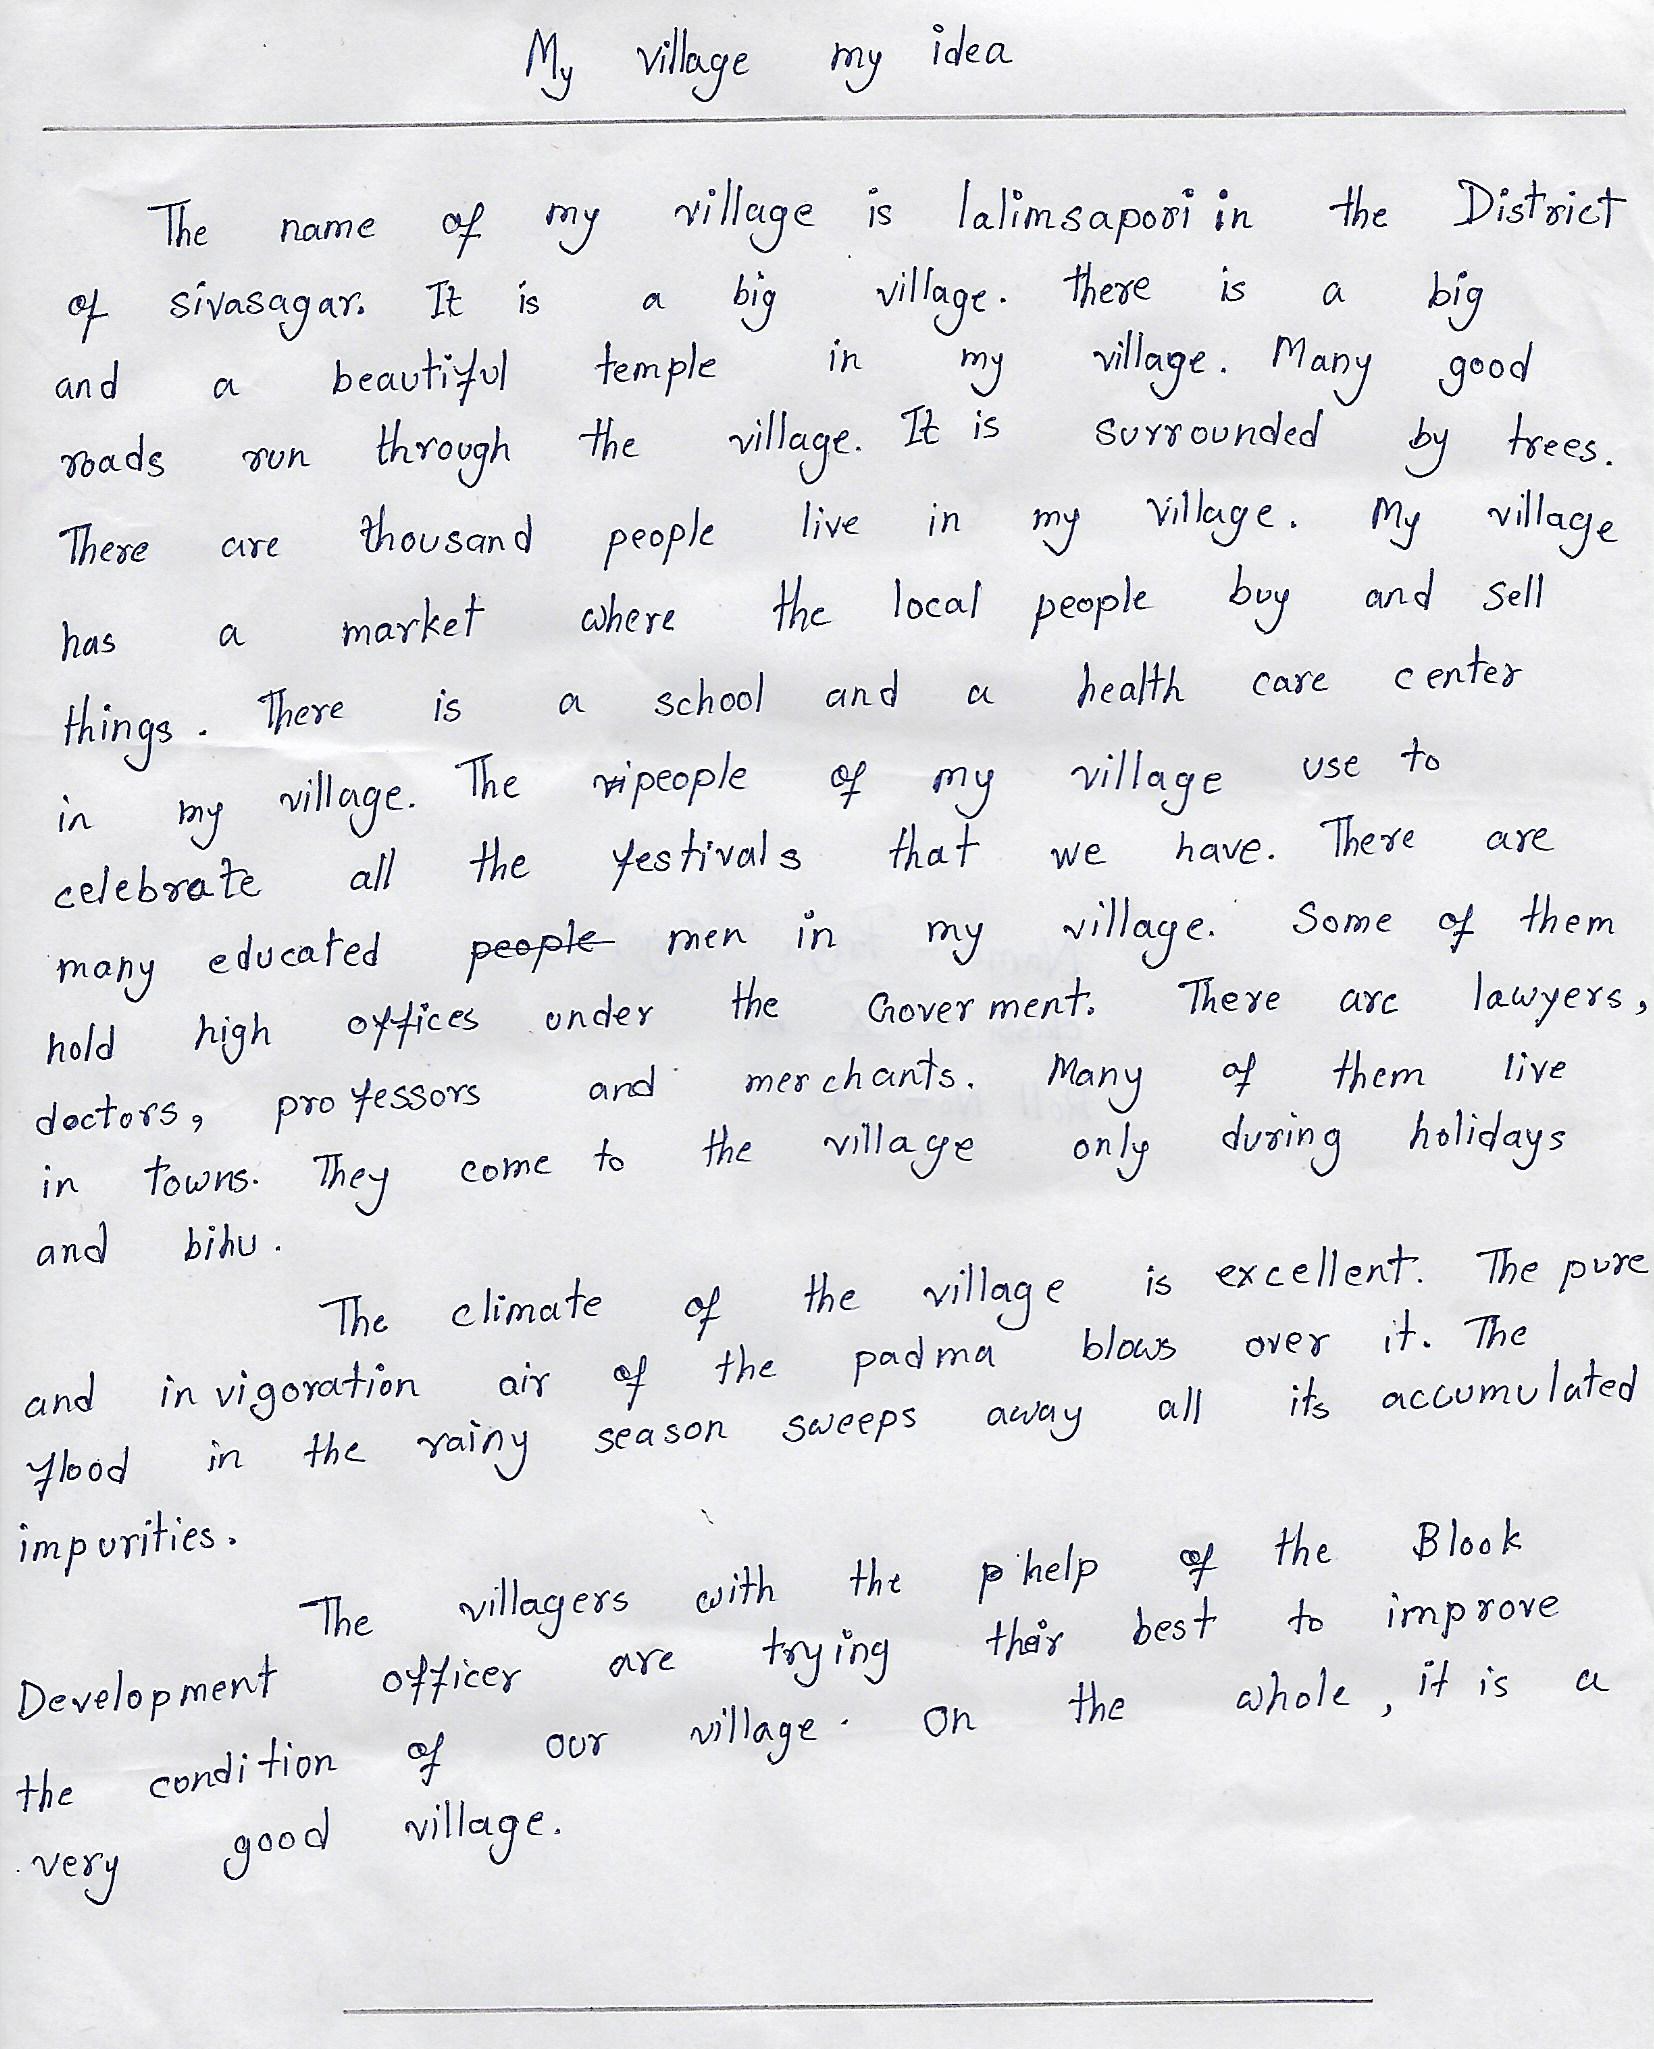 My village my idea
The name of my village is lalimsapori in the District
of sivasagar. It is a big village. there is a big
and a beautiful temple in my village. Many good
roads run through the village. It is surrounded by trees.
There are thousand people live in my village. My village
has a market where the local people buy and sell
things. There is a school and a health care center
in my village. The people of my village use to
celebrate all the festivals that we have. There are
many educated people men in my village. Some of them
hold high offices under the Goverment. There are lawyers,
doctors, professors and merchants. Many of them live
in towns. They come to the village only during holidays
and bihu.
The climate of the village is excellent. The pure
and invigoration air of the padma blows over it. The
flood in the rainy season sweeps away all its accumulated
impurities.
The villagers with the help of the Blook
Development officer are trying their best to improve
the condition of our village. On the whole, it is a
very good village.